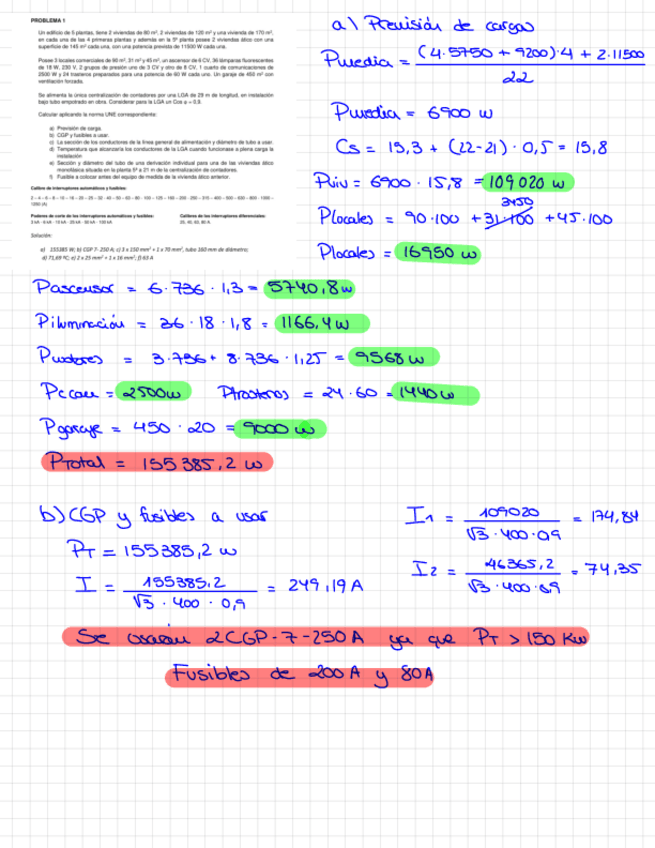 PROBLEMA 1
Un edificio de 5 plantas, tiene 2 viviendas de 80 m², 2 viviendas de 120 m² y una vivienda de 170 m²,
en cada una de las 4 primeras plantas y además en la 5ª planta posee 2 viviendas ático con una
superficie de 145 m² cada una, con una potencia prevista de 11500 W cada una.
Posee 3 locales comerciales de 90 m², 31 m² y 45 m², un ascensor de 6 CV, 36 lámparas fluorescentes
de 18 W, 230 V, 2 grupos de presión uno de 3 CV y otro de 8 CV, 1 cuarto de comunicaciones de
2500 W y 24 trasteros preparados para una potencia de 60 W cada uno. Un garaje de 450 m² con
ventilación forzada.
Se alimenta la única centralización de contadores por una LGA de 29 m de longitud, en instalación
bajo tubo empotrado en obra. Considerar para la LGA un Cos φ = 0,9.
Calcular aplicando la norma UNE correspondiente:
a) Previsión de carga.
b) CGP y fusibles a usar.
c) La sección de los conductores de la línea general de alimentación y diámetro de tubo a usar.
d) Temperatura que alcanzaría los conductores de la LGA cuando funcionase a plena carga la
instalación
e) Sección y diámetro del tubo de una derivación individual para una de las viviendas ático
monofásica situada en la planta 5ª a 21 m de la centralización de contadores.
f) Fusible a colocar antes del equipo de medida de la vivienda ático anterior.
Calibre de interruptores automáticos y fusibles:
2 – 4 – 6 – 8 – 10 – 16 – 20 – 25 – 32 – 40 – 50 – 63 – 80 – 100 – 125 – 160 – 200 – 250 – 315 – 400 – 500 – 630 – 800 – 1000 –
1250 (A)
Poderes de corte de los interruptores automáticos y fusibles:
Calibres de los interruptores diferenciales:
3 kA · 6 kA · 10 kA · 20 kA · 50 kA · 100 kA
25, 40, 63, 80 A
Solución:
a) 155385 W; b) CGP 7- 250 A; c) 3 x 150 mm² + 1 x 70 mm², tubo 160 mm de diámetro;
d) 71,69 ºC; e) 2 x 25 mm² + 1 x 16 mm²; f) 63 A
a) Previsión de cargas
Pmedia = (4·5750 + 9200)·4 + 2·11500 / 22
Pmedia = 6900 w
Cs = 15,3 + (22-21) · 0,5 = 15,8
Pviv = 6900 · 15,8 = 109020 w
3450
Plocales = 90·100 + 31·100 + 45·100
Plocales = 16950 w
Pascensor = 6·736 · 1,3 = 5740,8w
Piluminación = 36 · 18 · 1,8 = 1166,4w
Pmotores = 3·736 + 8·736 · 1,25 = 9568w
Pccom = 2500w Ptrasteros = 24·60 = 1440w
Pgaraje = 450 · 20 = 9000 w
Ptotal = 155385,2 w
b) CGP y fusibles a usar
PT = 155385,2 w
I = 155385,2 / √3 · 400 · 0,9 = 249,19 A
I1 = 109020 / √3·400·0,9 = 174,84
I2 = 46365,2 / √3·400·0,9 = 74,35
Se usarán 2CGP-7-250A ya que PT > 150 Kw
Fusibles de 200A y 80A